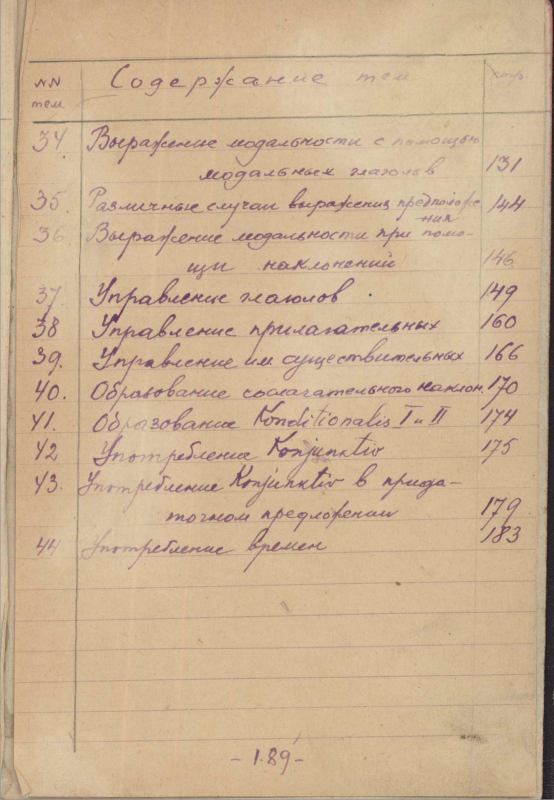 NN Содержание тем стр.
тем
34. Выражение модальности с помощью
модальных глаголов 131
35. Различные случаи выражения предположе- 144
ния
36. Выражение модальности при помо-
щи наклонений 146
37. Управление глаголов 149
38 Управление прилагательных 160
39. Управление им. существительных 166
40. Образование сослагательного наклон. 170
41. Образование Konditionalis I и II 174
42 Употребление Konjunktiv 175
43. Употребление Konjunktiv в прида-
точном предложении 179
44 Употребление времен 183
- 189 -